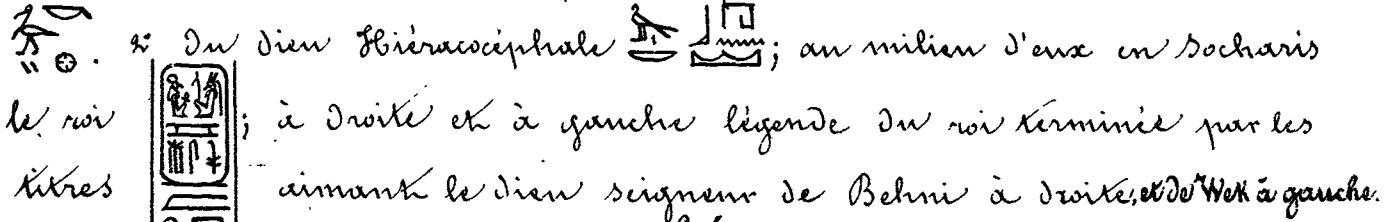 . 2° Du Dieu Hiéracocéphale ; au milieu d'eux en Socharis
le roi ; à droite et à gauche légende du roi terminée par les
titres aimant le Dieu seigneur de Behni à droite, et de Wek à gauche.